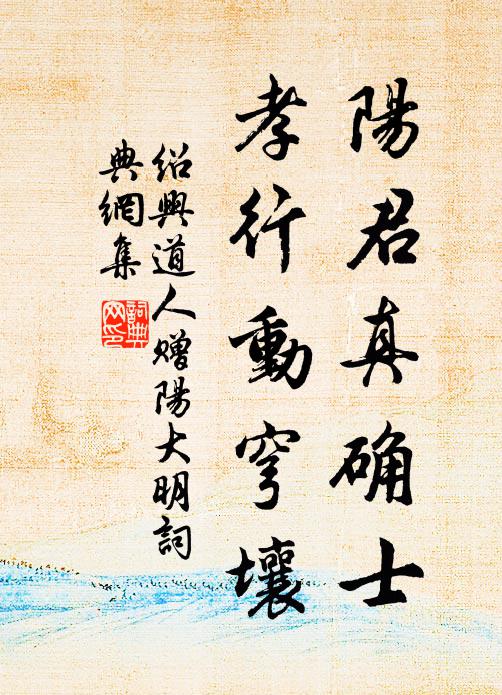 陽君真确士
孝行動穹壤
绍興道人赠陽大明詞
典網集
詞典网印